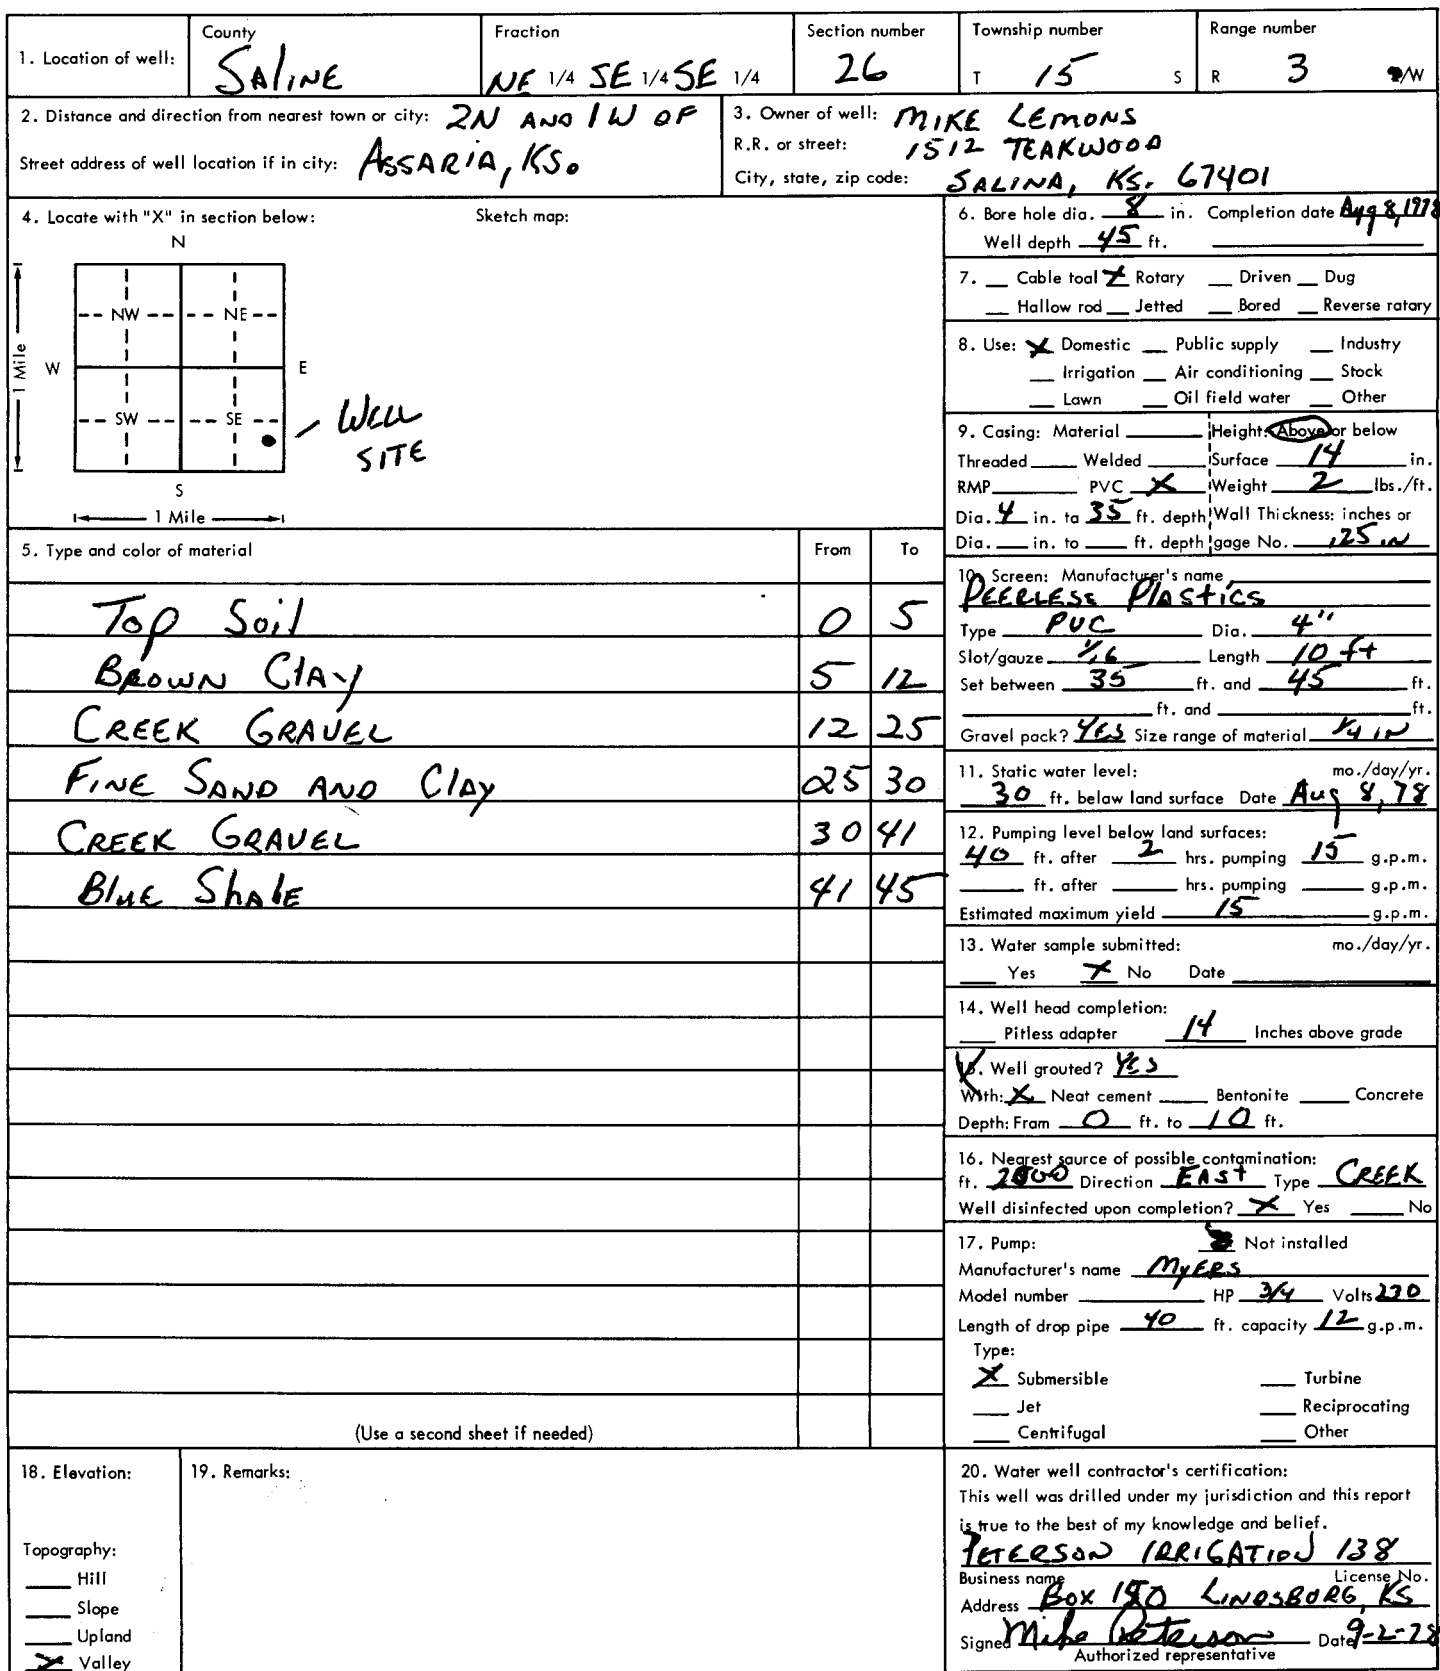 1. Location of well:
County
SALINE
Fraction
NE 1/4 SE 1/4 SE 1/4
Section number
26
Township number
T 15 S
Range number
R 3 /W
2. Distance and direction from nearest town or city: 2N AND 1W OF
Street address of well location if in city: ASSARIA, KS.
3. Owner of well: MIKE LEMONS
R.R. or street: 1512 TEAKWOOD
City, state, zip code: SALINA, KS. 67401
4. Locate with "X" in section below:
Sketch map:
N
NW NE
W E
1 Mile
SW SE
WELL
SITE
S
1 Mile
5. Type and color of material From To
Top Soil 0 5
BROWN ClAy 5 12
CREEK GRAVEL 12 25
FINE SAND AND ClAy 25 30
CREEK GRAVEL 30 41
BluE ShAlE 41 45
(Use a second sheet if needed)
6. Bore hole dia. 8 in. Completion date Aug 8, 1978
Well depth 45 ft.
7. Cable toal X Rotary Driven Dug
Hallow rod Jetted Bored Reverse ratary
8. Use: X Domestic Public supply Industry
Irrigation Air conditioning Stock
Lawn Oil field water Other
9. Casing: Material Height: Above or below
Threaded Welded Surface 14 in.
RMP PVC X Weight 2 lbs./ft.
Dia. 4 in. ta 35 ft. depth Wall Thickness: inches or
Dia. in. to ft. depth gage No. .25 IN
10. Screen: Manufacturer's name
PEERLESS PlAstiCS
Type PVC Dia. 4"
Slot/gauze 1/16 Length 10 ft
Set between 35 ft. and 45 ft.
ft. and ft.
Gravel pack? YES Size range of material 1/4 IN
11. Static water level: mo./day/yr.
30 ft. below land surface Date Aug 8, 78
12. Pumping level below land surfaces:
40 ft. after 2 hrs. pumping 15 g.p.m.
ft. after hrs. pumping g.p.m.
Estimated maximum yield 15 g.p.m.
13. Water sample submitted: mo./day/yr.
Yes X No Date
14. Well head completion:
Pitless adapter 14 Inches above grade
Well grouted? YES
With: X Neat cement Bentonite Concrete
Depth: Fram 0 ft. to 10 ft.
16. Nearest saurce of possible contamination:
ft. 2000 Direction EASt Type CREEK
Well disinfected upon completion? X Yes No
17. Pump: Not installed
Manufacturer's name MyERS
Model number HP 3/4 Volts 230
Length of drop pipe 40 ft. capacity 12 g.p.m.
Type:
X Submersible Turbine
Jet Reciprocating
Centrifugal Other
18. Elevation:
Topography:
Hill
Slope
Upland
X Valley
19. Remarks:
20. Water well contractor's certification:
This well was drilled under my jurisdiction and this report
is true to the best of my knowledge and belief.
PETERSON IRRIGATION 138
Business name License No.
Address Box LINDSBORG, KS
Signed Mike Peterson Date 9-2-78
Authorized representative